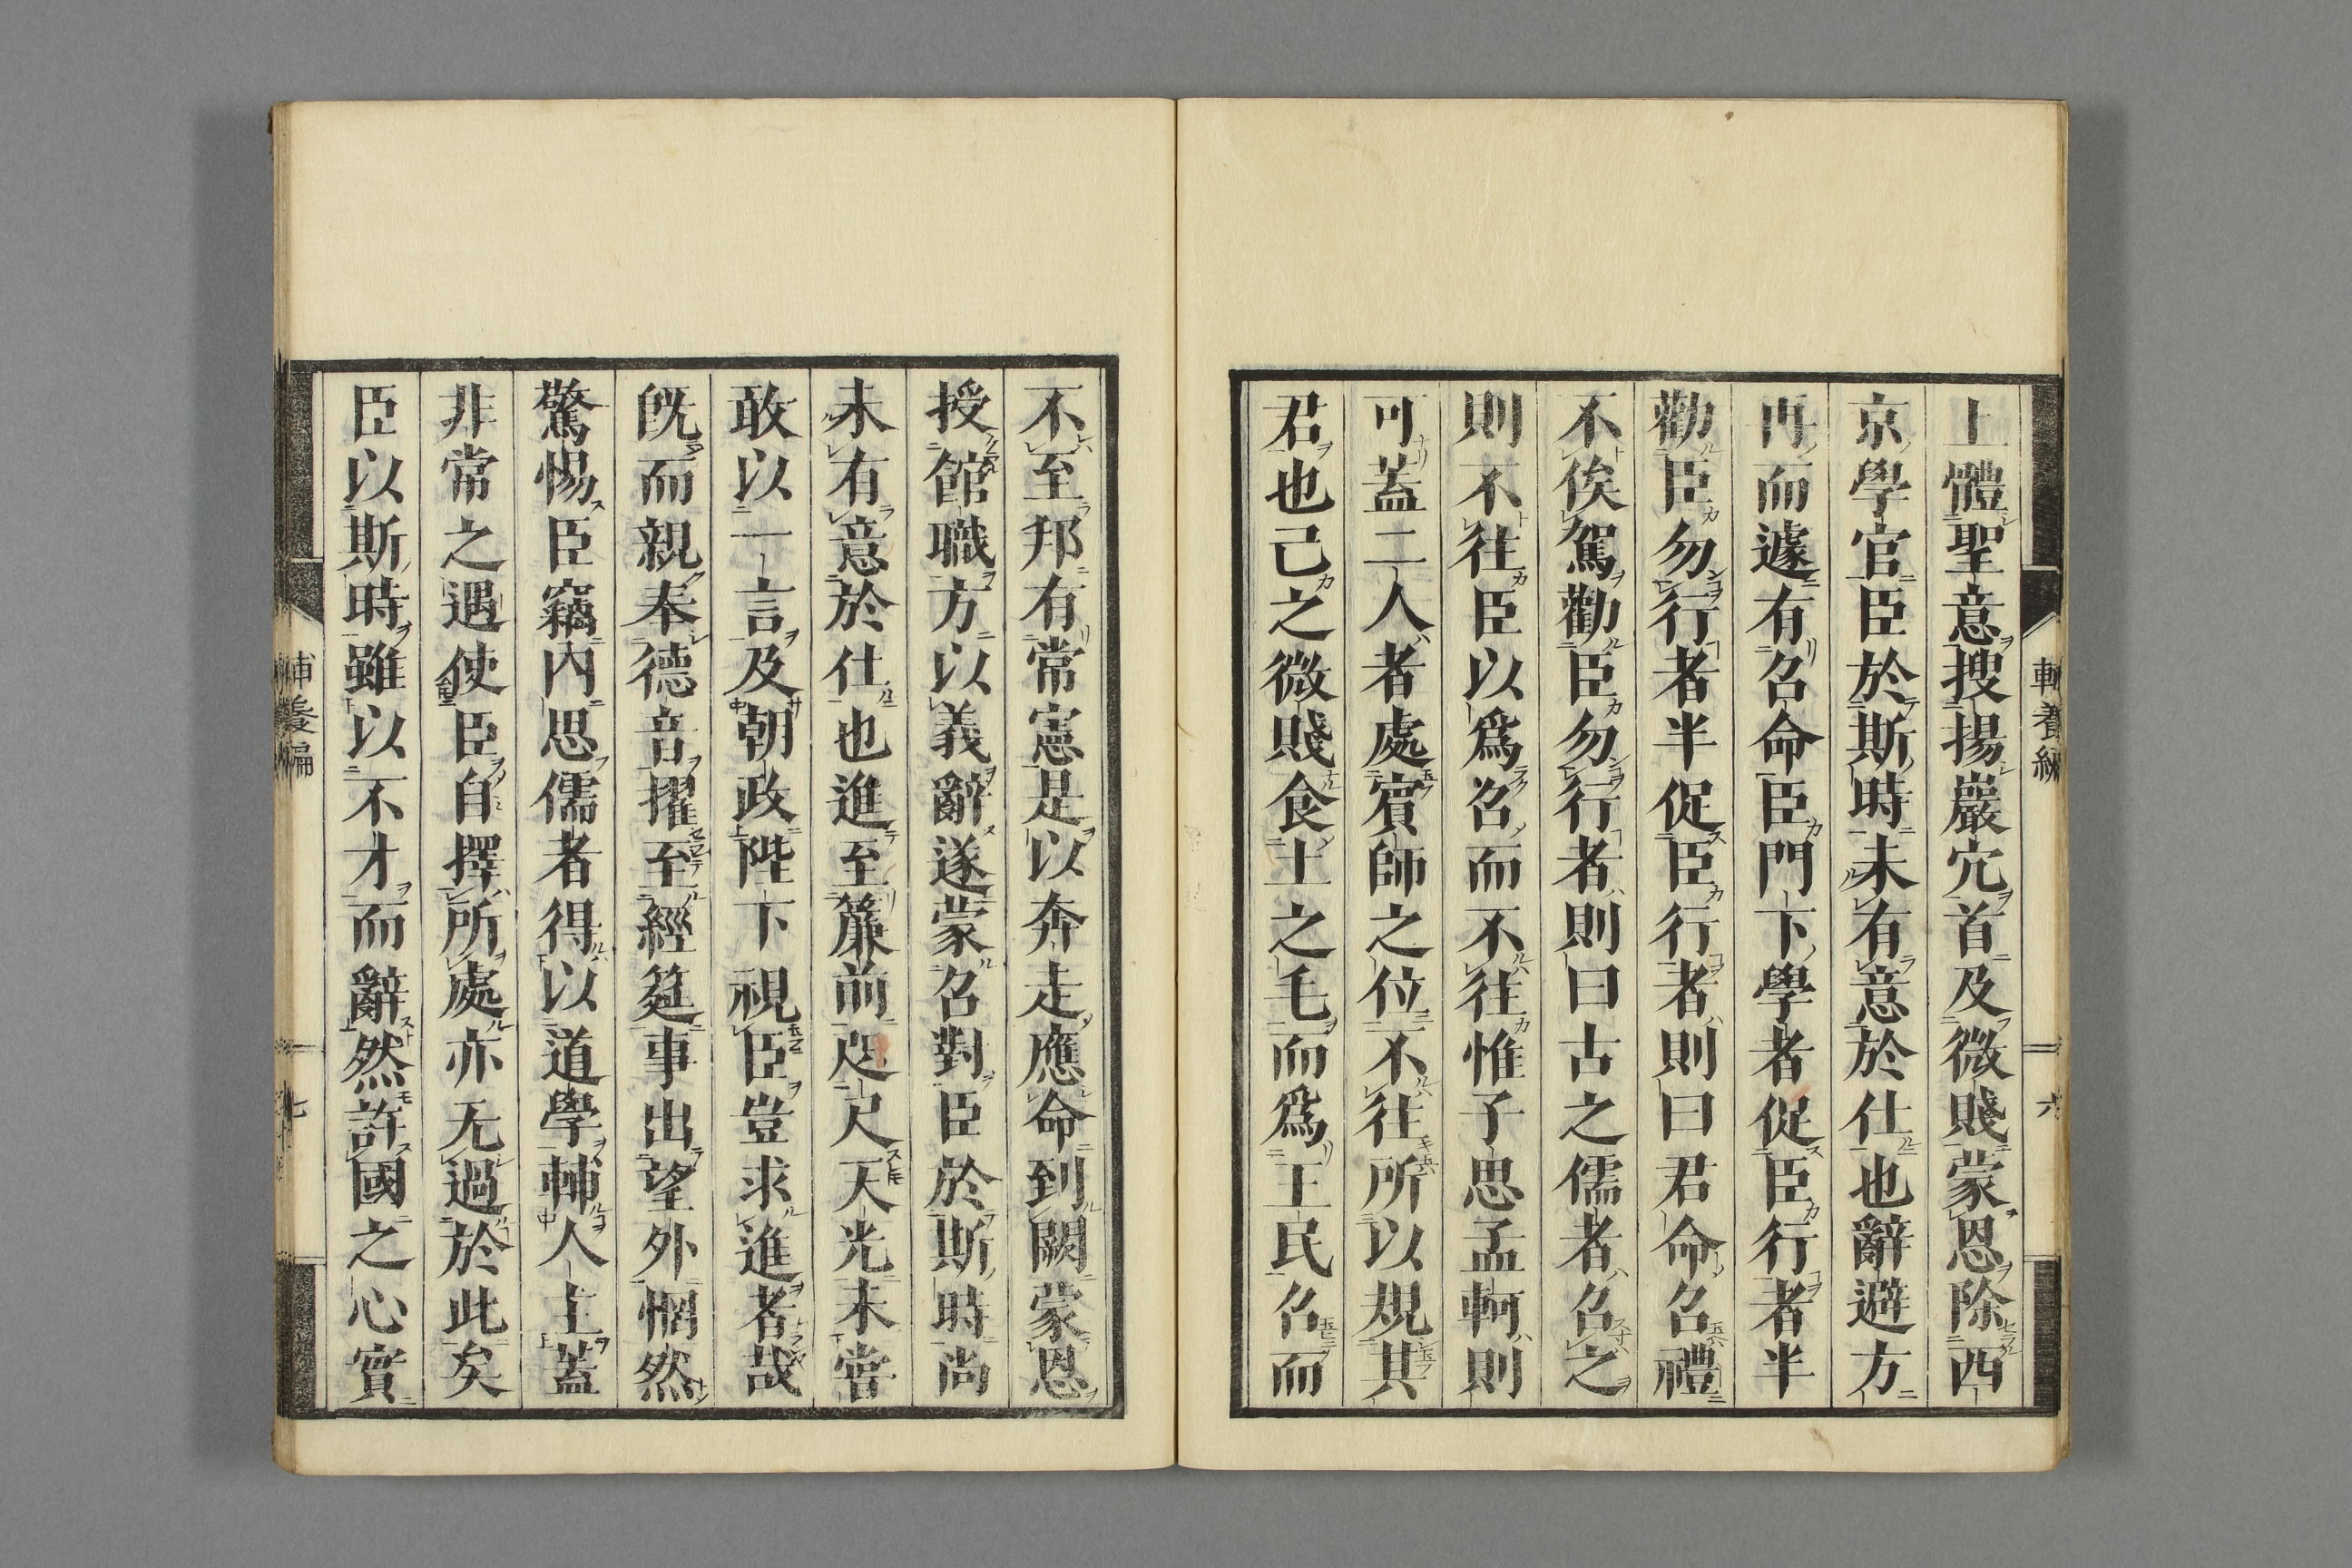 上體聖意搜揚巖穴首及微賤蒙恩除西
京學官臣於斯時未有意於仕也辭避方
再而遽有召命臣門下學者促臣行者半
勸臣勿行者半促臣行者則曰君命召禮
不俟駕勸臣勿行者則曰古之儒者召之
則不往臣以爲召而不往惟子思孟軻則
可蓋二人者處賓師之位不往所以規其
君也己之微賤食土之毛而爲王民召而
不至邦有常憲是以奔走應命到闕蒙恩
授館職方以義辭遂蒙召對臣於斯時尚
未有意於仕也進至簾前咫尺天光未嘗
敢以一言及朝政陛下視臣豈求進者哉
旣而親奉德音擢至經筵事出望外惘然
驚惕臣竊內思儒者得以道學輔人主蓋
非常之遇使臣自擇所處亦无過於此矣
臣以斯時雖以不才而辭然許國之心實
七